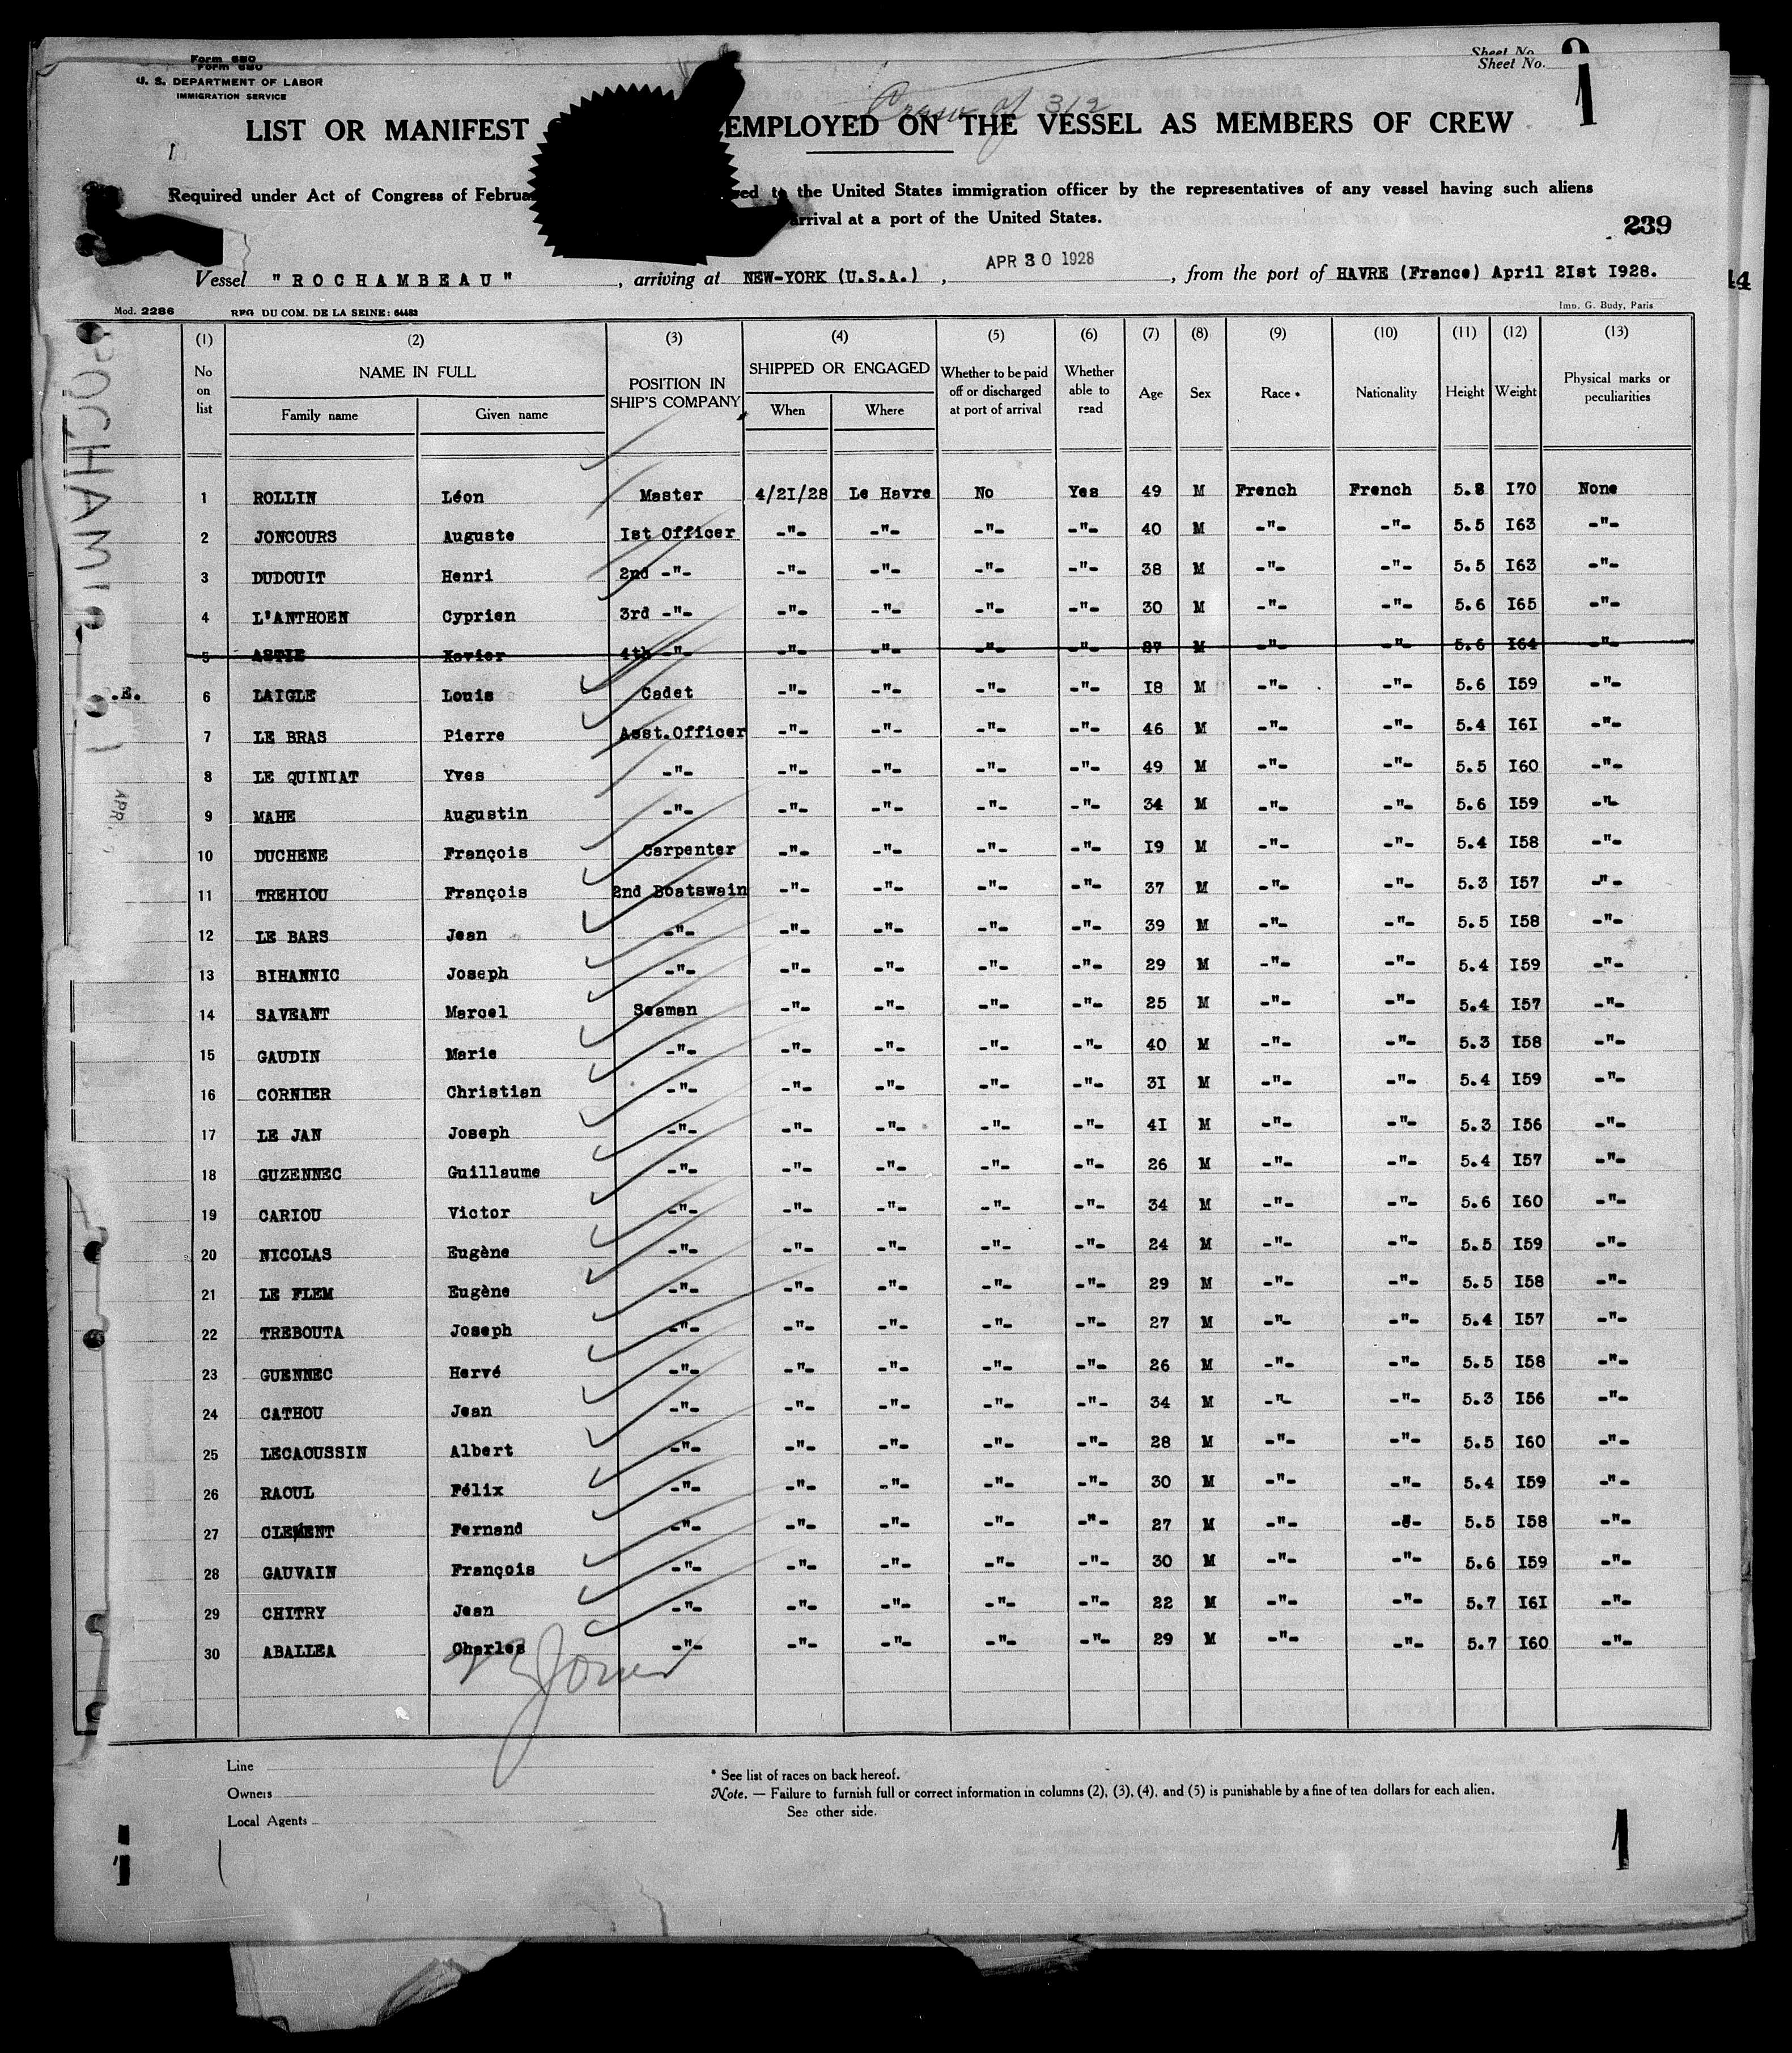 Form 680
Form 680
U. S. DEPARTMENT OF LABOR
IMMIGRATION SERVICE
Sheet No.
Sheet No. 1
Crew of 312
LIST OR MANIFEST EMPLOYED ON THE VESSEL AS MEMBERS OF CREW
Required under Act of Congress of to the United States immigration officer by the representatives of any vessel having such aliens
arrival at a port of the United States.
239
44
Vessel "ROCHAMBEAU", arriving at NEW-YORK (U.S.A.), APR 30 1928, from the port of HAVRE (France) April 2Ist I928.
Mod. 2286 REG DU COM. DE LA SEINE: 64483 Imp. G. Budy, Paris
(1) (2) (3) (4) (5) (6) (7) (8) (9) (10) (11) (12) (13)
No on list NAME IN FULL POSITION IN SHIP'S COMPANY SHIPPED OR ENGAGED Whether to be paid off or discharged at port of arrival Whether able to read Age Sex Race * Nationality Height Weight Physical marks or peculiarities
Family name Given name When Where
1 ROLLIN Léon Master 4/2I/28 Le Havre No Yes 49 M French French 5.8 I70 None
2 JONCOURS Auguste Ist Officer -"- -"- -"- -"- 40 M -"- -"- 5.5 I63 -"-
3 DUDOUIT Henri 2nd -"- -"- -"- -"- -"- 38 M -"- -"- 5.5 I63 -"-
4 L'ANTHOEN Cyprien 3rd -"- -"- -"- -"- -"- 30 M -"- -"- 5.6 I65 -"-
5 ASTIE Xavier 4th -"- -"- -"- -"- -"- 27 M -"- -"- 5.6 I64 -"-
6 LAIGLE Louis Cadet -"- -"- -"- -"- I8 M -"- -"- 5.6 I59 -"-
7 LE BRAS Pierre Asst.Officer -"- -"- -"- -"- 46 M -"- -"- 5.4 I6I -"-
8 LE QUINIAT Yves -"- -"- -"- -"- -"- 49 M -"- -"- 5.5 I60 -"-
9 MAHE Augustin -"- -"- -"- -"- -"- 34 M -"- -"- 5.6 I59 -"-
10 DUCHENE François Carpenter -"- -"- -"- -"- I9 M -"- -"- 5.4 I58 -"-
11 TREHIOU François 2nd Boatswain -"- -"- -"- -"- 37 M -"- -"- 5.3 I57 -"-
12 LE BARS Jean -"- -"- -"- -"- -"- 39 M -"- -"- 5.5 I58 -"-
13 BIHANNIC Joseph -"- -"- -"- -"- -"- 29 M -"- -"- 5.4 I59 -"-
14 SAVEANT Marcel Seaman -"- -"- -"- -"- 25 M -"- -"- 5.4 I57 -"-
15 GAUDIN Marie -"- -"- -"- -"- -"- 40 M -"- -"- 5.3 I58 -"-
16 CORNIER Christian -"- -"- -"- -"- -"- 3I M -"- -"- 5.4 I59 -"-
17 LE JAN Joseph -"- -"- -"- -"- -"- 4I M -"- -"- 5.3 I56 -"-
18 GUZENNEC Guillaume -"- -"- -"- -"- -"- 26 M -"- -"- 5.4 I57 -"-
19 CARIOU Victor -"- -"- -"- -"- -"- 34 M -"- -"- 5.6 I60 -"-
20 NICOLAS Eugène -"- -"- -"- -"- -"- 24 M -"- -"- 5.5 I59 -"-
21 LE FLEM Eugène -"- -"- -"- -"- -"- 29 M -"- -"- 5.5 I58 -"-
22 TREBOUTA Joseph -"- -"- -"- -"- -"- 27 M -"- -"- 5.4 I57 -"-
23 GUENNEC Hervé -"- -"- -"- -"- -"- 26 M -"- -"- 5.5 I58 -"-
24 CATHOU Jean -"- -"- -"- -"- -"- 34 M -"- -"- 5.3 I56 -"-
25 LECAOUSSIN Albert -"- -"- -"- -"- -"- 28 M -"- -"- 5.5 I60 -"-
26 RAOUL Félix -"- -"- -"- -"- -"- 30 M -"- -"- 5.4 I59 -"-
27 CLEMENT Fernand -"- -"- -"- -"- -"- 27 M -"- -"- 5.5 I58 -"-
28 GAUVAIN François -"- -"- -"- -"- -"- 30 M -"- -"- 5.6 I59 -"-
29 CHITRY Jean -"- -"- -"- -"- -"- 22 M -"- -"- 5.7 I6I -"-
30 ABALLEA Charles -"- -"- -"- -"- -"- 29 M -"- -"- 5.7 I60 -"-
Line
Owners
Local Agents
* See list of races on back hereof.
Note. — Failure to furnish full or correct information in columns (2), (3), (4), and (5) is punishable by a fine of ten dollars for each alien.
See other side.
1